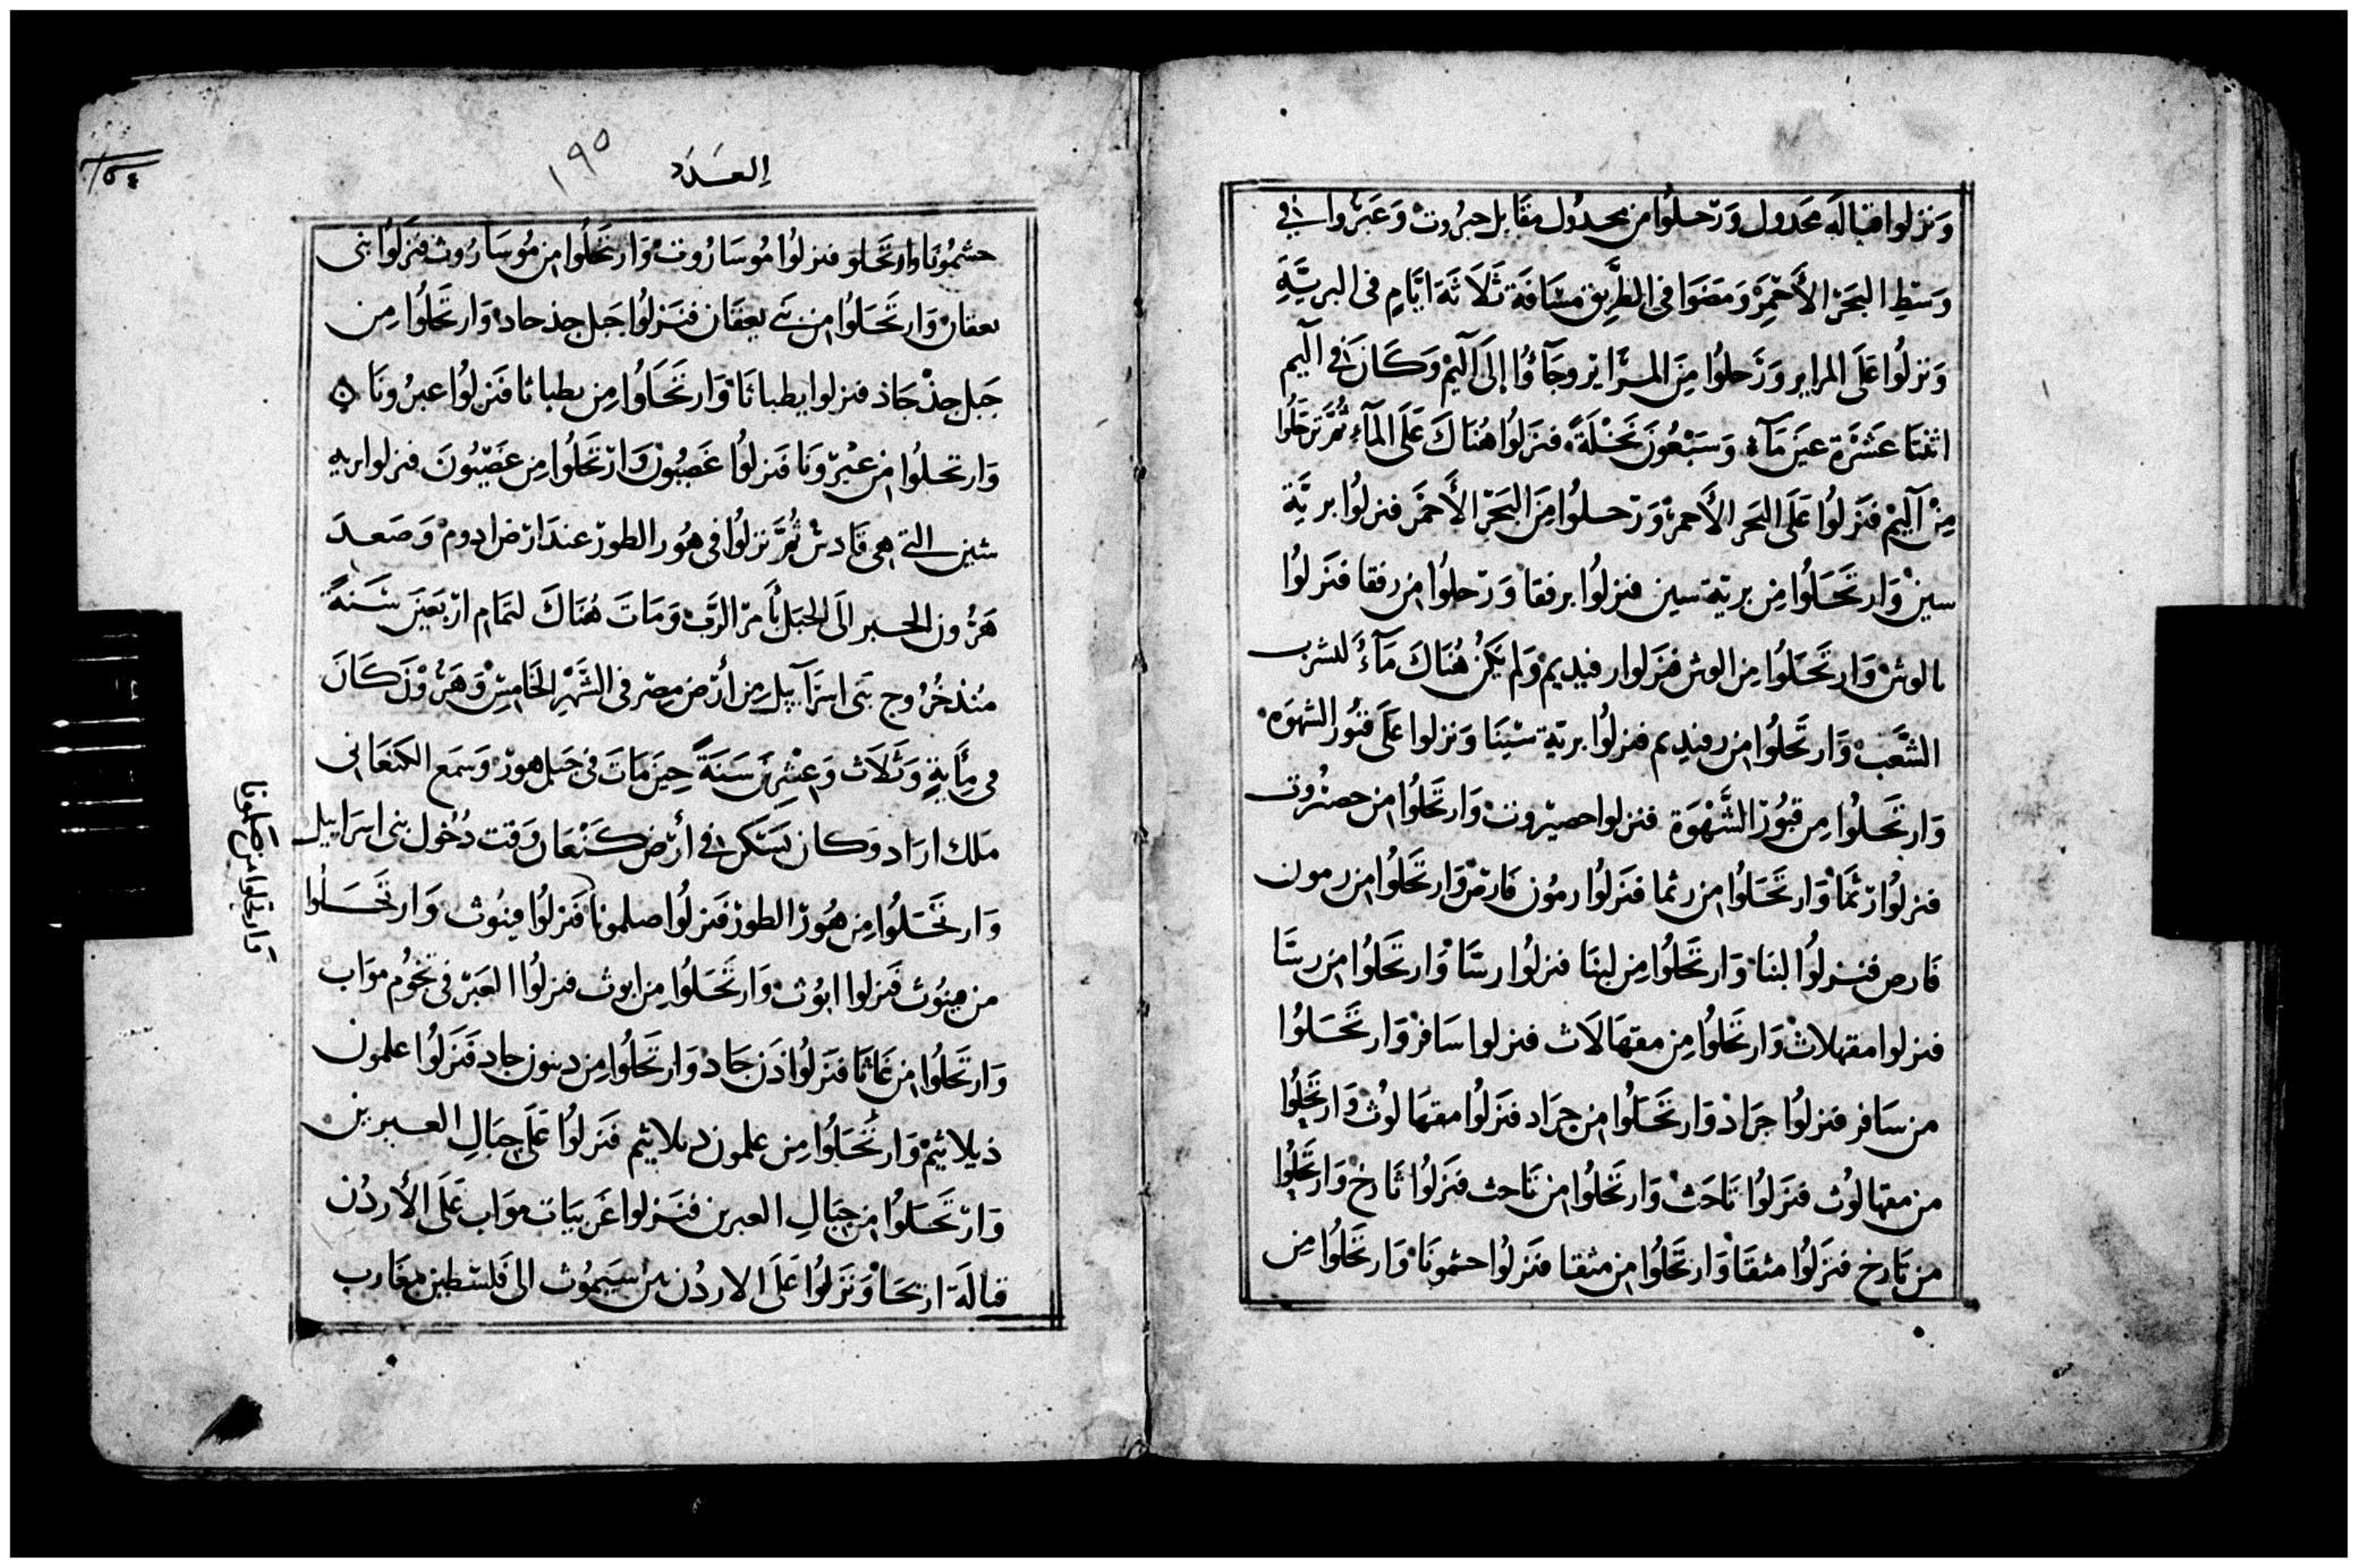 وَنزلوا قبالة مَجدول وَرحلوا من مجدول مقابل حيروت وَعَبروا في
وَسَطِ البَحر الأَحمر وَمَضَوا في الطَّريق مسَافَة ثَلَاثَة ايَّامٍ في البريَّةِ
وَنزلُوا عَلَى المراير وَرَحلوُا مِنَ المرَاير وجَآؤُا إلَى آليم وَكَانَ في آليم
اثنتَا عَشرَة عينَ مَآء وَسَبْعُونَ نَخْلَةً فنزَلوُا هُنَاكَ عَلَى المآءِ ثُمَّ رَحَلُوا
مِنْ آليم فنَزلوُا عَلَى البَحر الأَحمر وَرَحلوُا مِنَ البَحْر الأَحمَر فنزلوُا بريَّة
سين وَارتَحَلوُا مِن بريّة سين فنزلوُا برفقا وَرَحلوُا من رفقا فنَزلوُا
بالوش وَارتَحَلوُا مِن الوش فنزلوا رفيديم وَلم يَكُن هُنَاكَ مَآءٌ لشرب
الشَّعب وَارتَحلوُا من رفيديم فنزلوُا بريّة سيْنَا وَنزلوا عَلَى قبُور الشهوَه
وَارتحَلوُا مِن قبُور الشَّهْوَة فنزلوا حصيروت وَارتحَلوُا من حصروت
فنزلوُا رثمَا وَارتَحَلوُا من رثما فنَزلوُا رمُون فَارص وَارتَحَلوُا من رمون
فَارص فنزلوُا لبنَا وَارتَحَلوُا مِن لبنَا فنزلوُا رسَّا وَارتَحَلوُا من رسَّا
فنزلوا مقهلاث وَارتَحَلوُا مِن مقهَالَاث فنزلوا سَافر وَارتَحَلوُا
من سَافر فنزلوُا جرَاد وَارتَحَلوُا من جرَاد فنَزلوُا مقهَالوُث وَارتَحَلُوا
من مقهالوُث فنَزلوُا تَاحَث وَارتَحَلوُا من تَاحث فنَزلوُا تَارخ وَارتَحَلُوا
من تَارخ فنزَلوُا مثقَا وَارتَحَلوُا من مثقا فنَزلوُا حشمونَا وَارتَحَلوُا مِن
العَدَد ١٩٥
حشمُونَا وارتَحَلو فنزلوُا مُوسَارُوت وَارتَحَلوُا من مُوسَارُوث فنَزلوُا بنى
يعقَان وَارتَحَلوُا من بنى يعقَان فنَزلوُا جَبل جذحاد وَارتَحَلوُا مِن
جَبل جذْحَاذ فنزلوا يطباثَا وَارتَحَلوُا مِن يطباثا فنَزلوُا عبرُونَا
وَارتحلوُا من عبْرُونَا فنزلوُا غَصبُون وَارتَحَلوُا مِن غَصْبُونَ فنزلوا بريه
شين التى هى قادش ثُمَّ نزلوُا فى هوُر الطور عندَ ارْض ادوم وَصَعدَ
هَرُون الحبر الَى الجَبل بأَمر الرَّبِّ وَمَاتَ هُنَاكَ لتمَامِ ارْبَعينَ سَنَةً
مُنذ خُرُوج بَنى اسرَآييل مِن أرْض مِصْر فى الشَّهْرِ الخَامِس وَهَرُونَ كَانَ
فى مِأَيةٍ وَثَلَاث وَعِشْرِينَ سَنَةً حِينَ مَاتَ فى جَبل هور وَسَمَع الكنعَانى
مَلك ارَاد وَكان يَسْكن في أرْض كَنْعَان وَقت دُخول بنى اسرَاييل
وَارتَحَلوُا مِن هُورُ الطور فنَزلوُا صلمونا فنَزلوُا فينوُث وَارتَحَلُوا
وَارتحلوا من صلمونا
من فينوُث فنَزلوا ابُوث وَارتَحَلوُا مِن ابوث فنزلوُا العَبَر فى تخوُم موَاب
وَارتحَلوُا من غَاثَا فنَزلوُا ذَن جَاد وَارتَحَلوُا مِن دبون جاد فنَزلوُا علمون
ذيلاثيم وَارتَحَلوُا مِن علمون ديلاثيم فنَزلوُا عَلَى جبَالِ العبرين
وَارتَحَلوُا من جبَالِ العبرين فنَزلوا عَربيَات موَاب عَلَى الأردُن
قبالَة ارتحَا وَنَزلوُا عَلَى الاردُن من سيَموُث الى فَلسْطين مغَارب